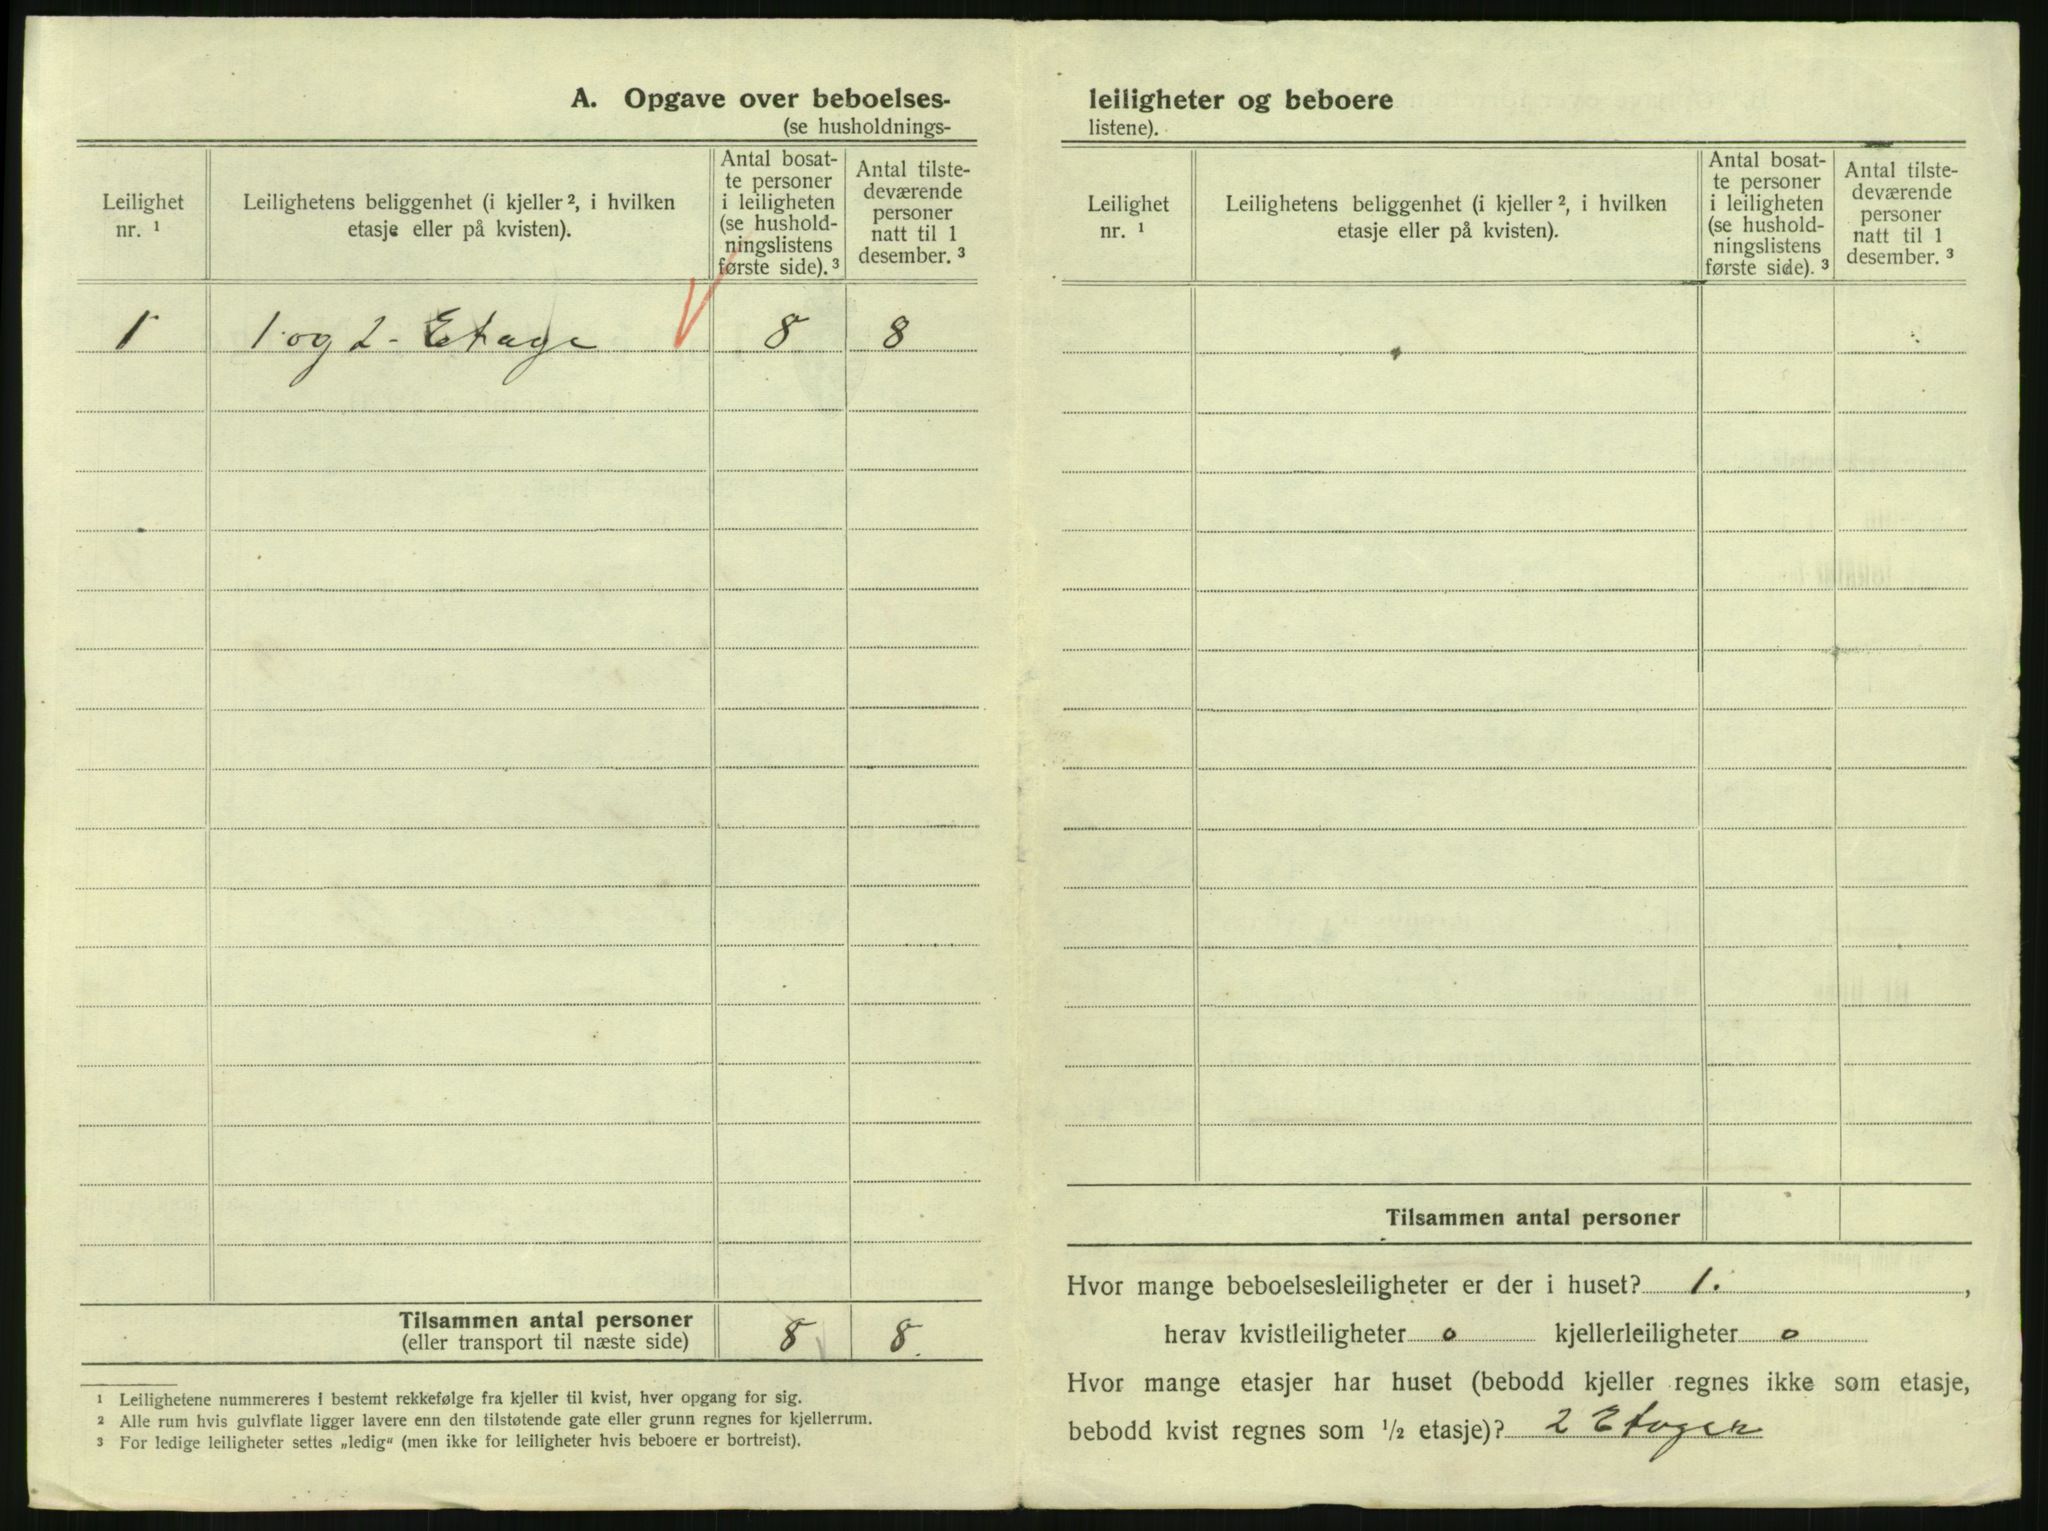 A. Opgave over beboelses-
(se husholdnings-
Leilighet nr. ¹
Leilighetens beliggenhet (i kjeller ², i hvilken
etasje eller på kvisten).
Antal bosat-
te personer
i leiligheten
(se hushold-
ningslistens
første side). ³
Antal tilste-
deværende
personer
natt til 1
desember. ³
1 1 og 2. Etage 8 8
Tilsammen antal personer
(eller transport til næste side) 8 8.
¹ Leilighetene nummereres i bestemt rekkefølge fra kjeller til kvist, hver opgang for sig.
² Alle rum hvis gulvflate ligger lavere enn den tilstøtende gate eller grunn regnes for kjellerrum.
³ For ledige leiligheter settes „ledig“ (men ikke for leiligheter hvis beboere er bortreist).
leiligheter og beboere
listene).
Leilighet nr. ¹
Leilighetens beliggenhet (i kjeller ², i hvilken
etasje eller på kvisten).
Antal bosat-
te personer
i leiligheten
(se hushold-
ningslistens
første side). ³
Antal tilste-
deværende
personer
natt til 1
desember. ³
Tilsammen antal personer
Hvor mange beboelsesleiligheter er der i huset? 1. ,
herav kvistleiligheter 0 kjellerleiligheter 0
Hvor mange etasjer har huset (bebodd kjeller regnes ikke som etasje,
bebodd kvist regnes som ½ etasje)? 2 Etager